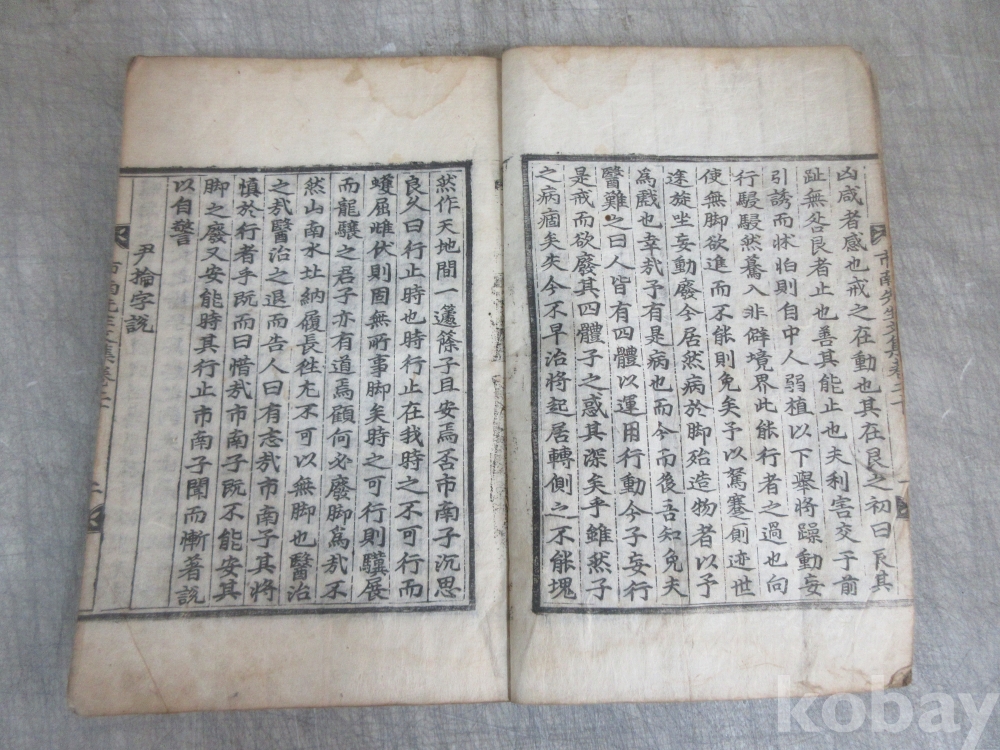 凶咸者感也戒之在動也其在艮之初曰艮其
趾無咎艮者止也善其能止也夫利害交于前
引誘而怵怕則自中人弱植以下擧將躁動妄
行駸駸然驀入非僻境界此能行者之過也向
使無脚欲進而不能則免矣予以駑蹇側迹世
途旋坐妄動廢今居然病於脚殆造物者以予
爲戱也幸哉予有是病也而今而後吾知免夫
醫難之曰人皆有四體以運用行動今子妄行
是戒而欲廢其四體子之惑其深矣乎雖然子
之病痼矣失今不早治將起居轉側之不能塊
然作天地間一蘧蒢子且安焉否市南子沉思
良久曰行止時也時行止在我時之不可行而
蠖屈雌伏則固無所事脚矣時之可行則驥展
而龍驤之君子亦有道焉顧何必廢脚爲哉不
然山南水北納履長徃尤不可以無脚也醫治
之哉醫治之退而告人曰有志哉市南子其將
愼於行者乎旣而曰惜哉市南子旣不能安其
脚之廢又安能時其行止市南子聞而慚著說
以自警
尹掄字說
市南先生文集卷二
kobay